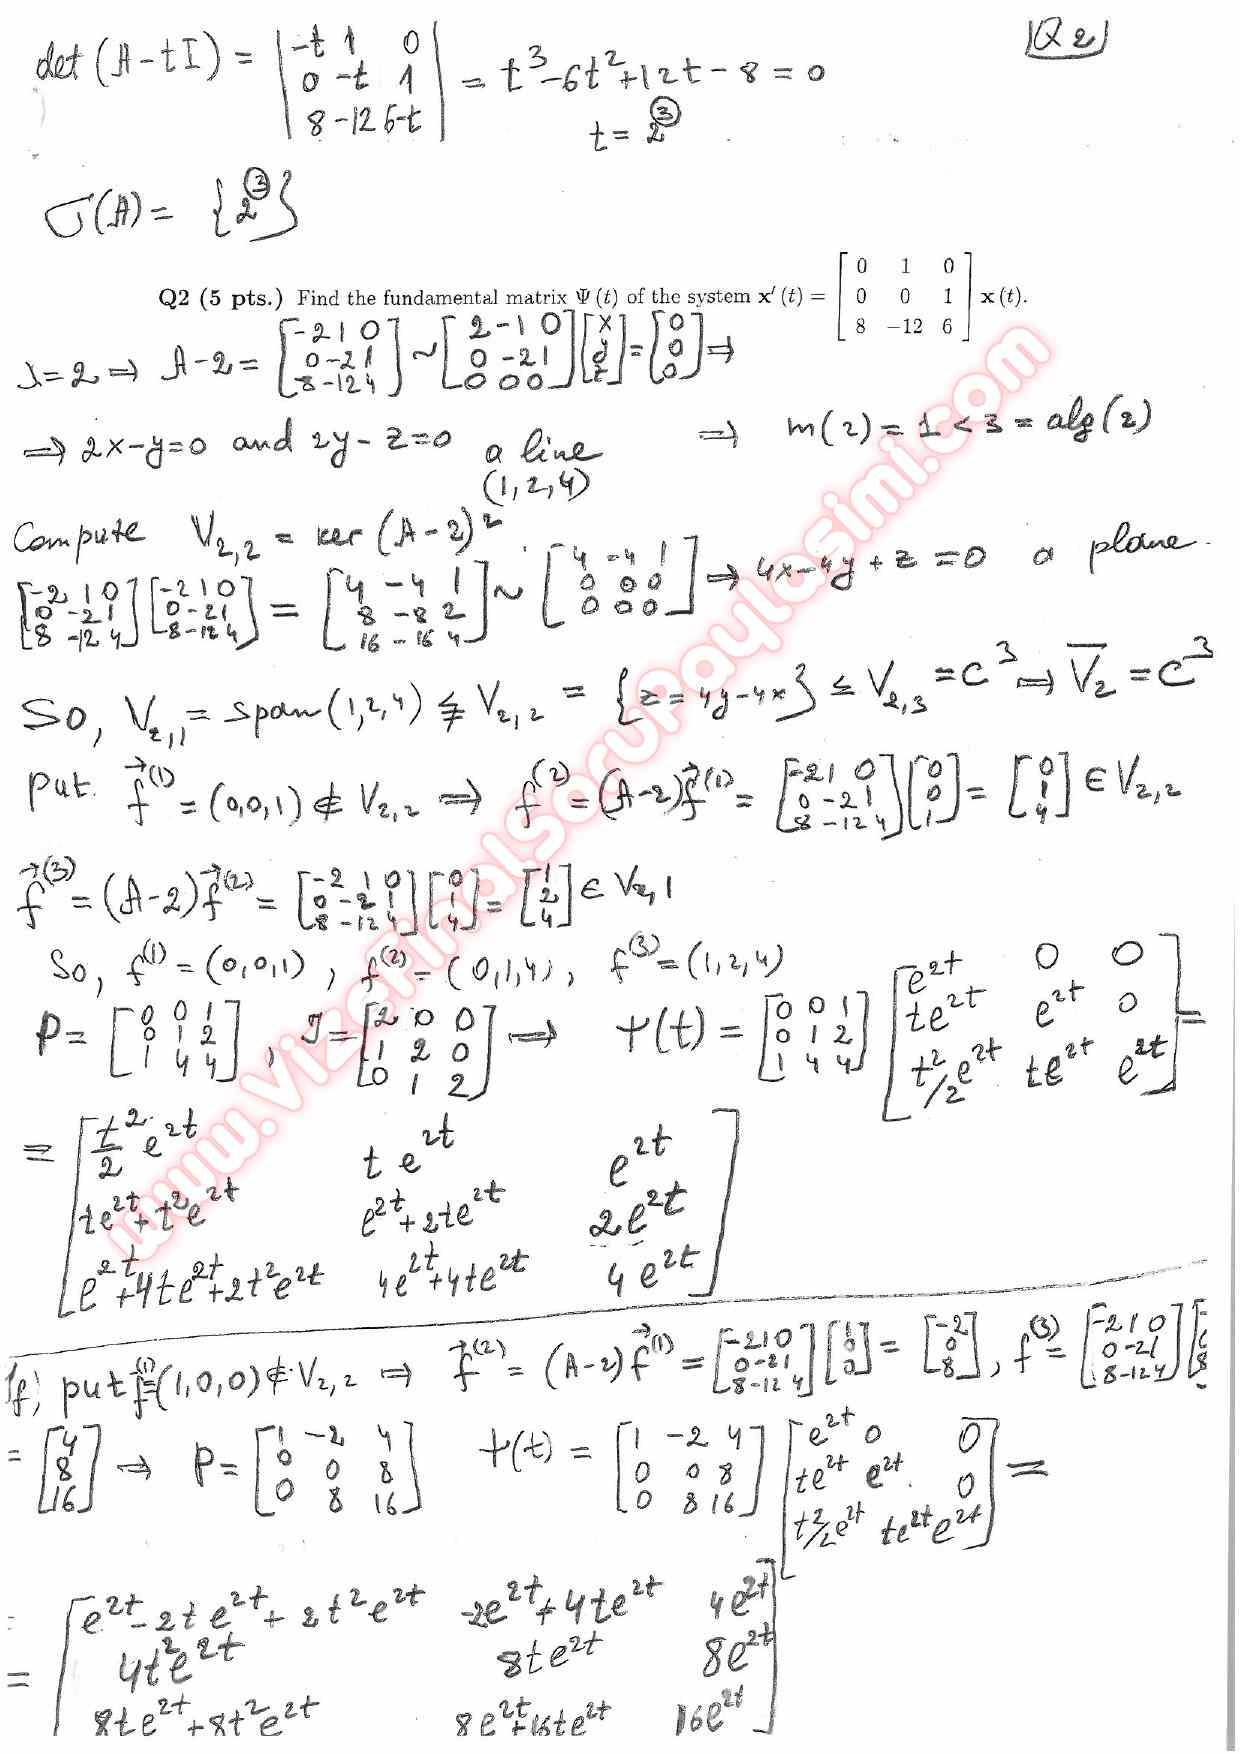 Q2
det(A-tI) = |-t 1 0; 0 -t 1; 8 -12 6-t| = t³-6t²+12t-8=0
t=2^③
σ(A) = {2^③}
Q2 (5 pts.) Find the fundamental matrix Ψ(t) of the system x′(t) = [0 1 0; 0 0 1; 8 −12 6] x(t).
λ=2 ⇒ A-2 = [-2 1 0; 0 -2 1; 8 -12 4] ~ [2 -1 0; 0 -2 1; 0 0 0][x; y; z] = [0; 0; 0] ⇒
⇒ 2x-y=0 and 2y-z=0 a line (1,2,4) ⇒ m(2)=1<3=alg(2)
Compute V₂,₂ = ker(A-2)².
[-2 1 0; 0 -2 1; 8 -12 4][-2 1 0; 0 -2 1; 8 -12 4] = [4 -4 1; 8 -8 2; 16 -16 4] ~ [4 -4 1; 0 0 0; 0 0 0] ⇒ 4x-4y+z=0 a plane.
So, V₂,₁ = span(1,2,4) ≨ V₂,₂ = {z=4y-4x} ≤ V₂,₃ = C³ ⇒ V̅₂ = C³
Put f⃗⁽¹⁾ = (0,0,1) ∉ V₂,₂ ⇒ f⁽²⁾ = (A-2)f⃗⁽¹⁾ = [-2 1 0; 0 -2 1; 8 -12 4][0; 0; 1] = [0; 1; 4] ∈ V₂,₂
f⃗⁽³⁾ = (A-2)f⃗⁽²⁾ = [-2 1 0; 0 -2 1; 8 -12 4][0; 1; 4] = [1; 2; 4] ∈ V₂,₁
So, f⁽¹⁾ = (0,0,1), f⁽²⁾ = (0,1,4), f⁽³⁾ = (1,2,4)
P = [0 0 1; 0 1 2; 1 4 4], J = [2 0 0; 1 2 0; 0 1 2] ⇒ Ψ(t) = [0 0 1; 0 1 2; 1 4 4][e^2t 0 0; te^2t e^2t 0; t²/2 e^2t te^2t e^2t] =
= [t²/2 e^2t te^2t e^2t; te^2t+t²e^2t e^2t+2te^2t 2e^2t; e^2t+4te^2t+2t²e^2t 4e^2t+4te^2t 4e^2t]
If, put f⃗⁽¹⁾=(1,0,0) ∉ V₂,₂ ⇒ f⃗⁽²⁾ = (A-2)f⃗⁽¹⁾ = [-2 1 0; 0 -2 1; 8 -12 4][1; 0; 0] = [-2; 0; 8], f⁽³⁾ = [-2 1 0; 0 -2 1; 8 -12 4]
= [4; 8; 16] ⇒ P = [1 -2 4; 0 0 8; 0 8 16] Ψ(t) = [1 -2 4; 0 0 8; 0 8 16][e^2t 0 0; te^2t e^2t 0; t²/2 e^2t te^2t e^2t] =
= [e^2t-2te^2t+2t²e^2t -2e^2t+4te^2t 4e^2t; 4t²e^2t 8te^2t 8e^2t; 8te^2t+8t²e^2t 8e^2t+16te^2t 16e^2t]
www.VizeFinalSoruPaylasimi.com